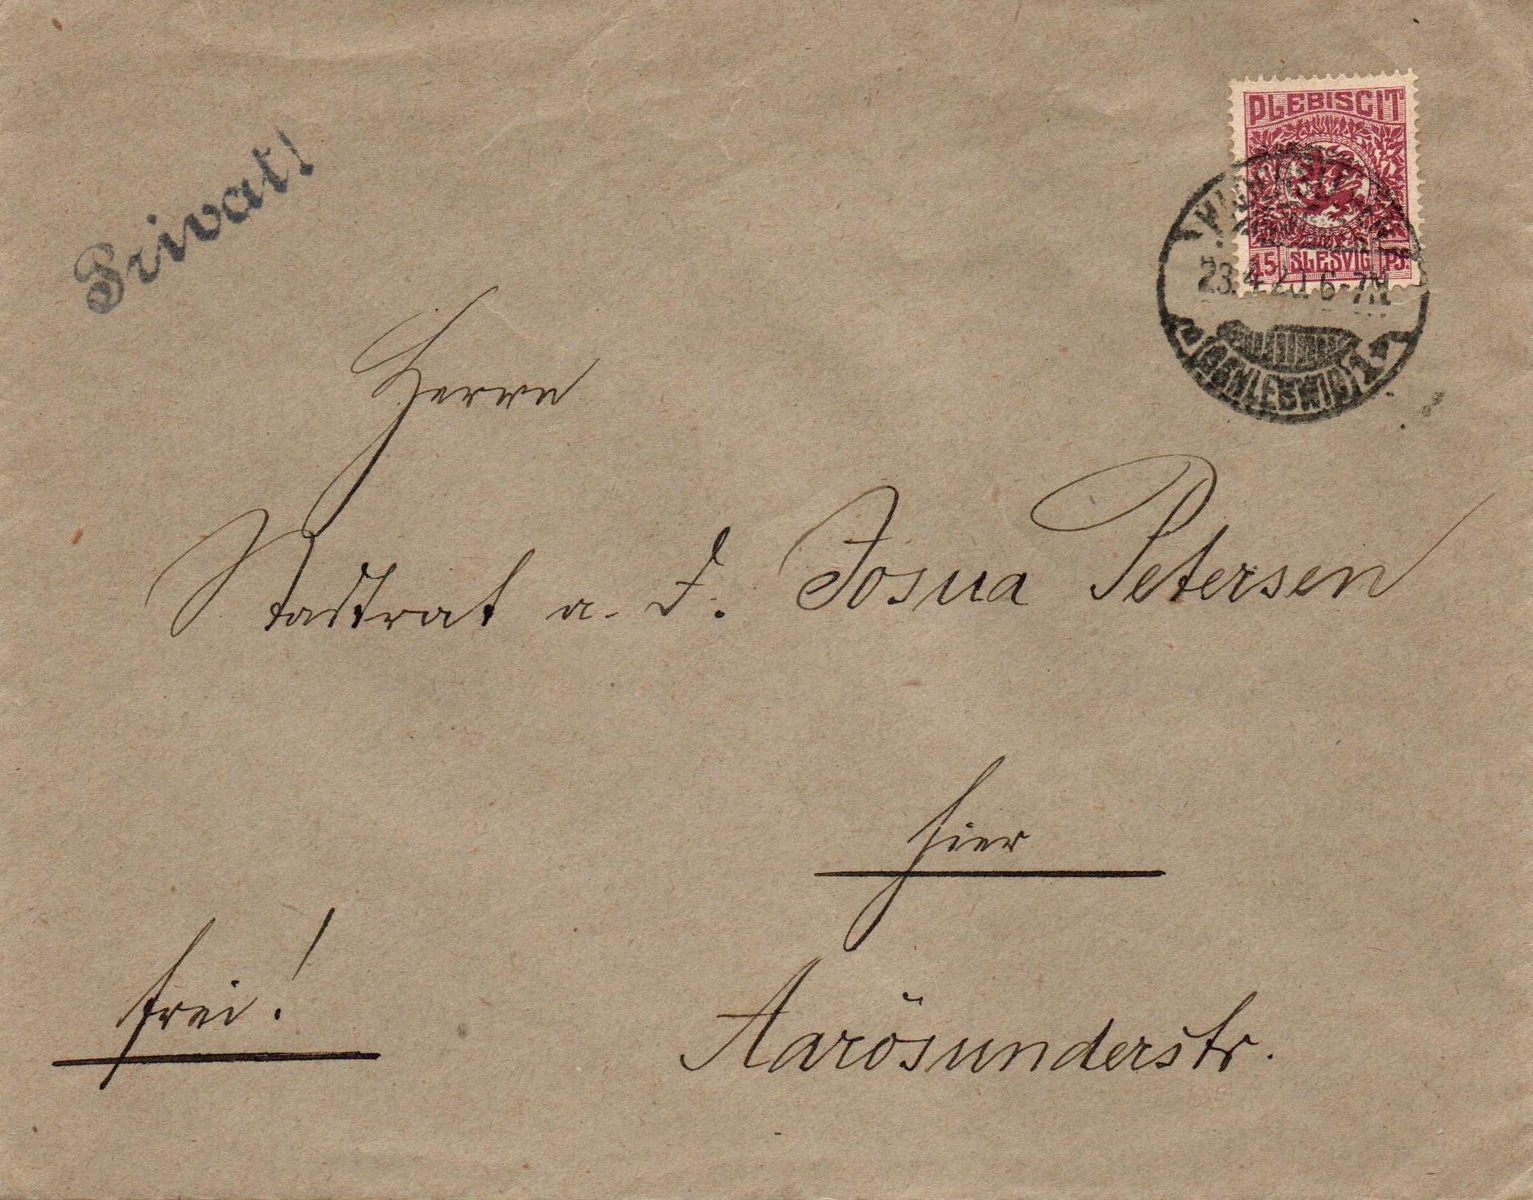 Privat!
PLEBISCIT
15 SLESVIG Pf.
HADERSLEBEN
23.4.20. 6-7N
(SCHLESWIG) 1
Herrn
Stadtrat a. D. Josua Petersen
hier
frei!
Aarösunderstr.